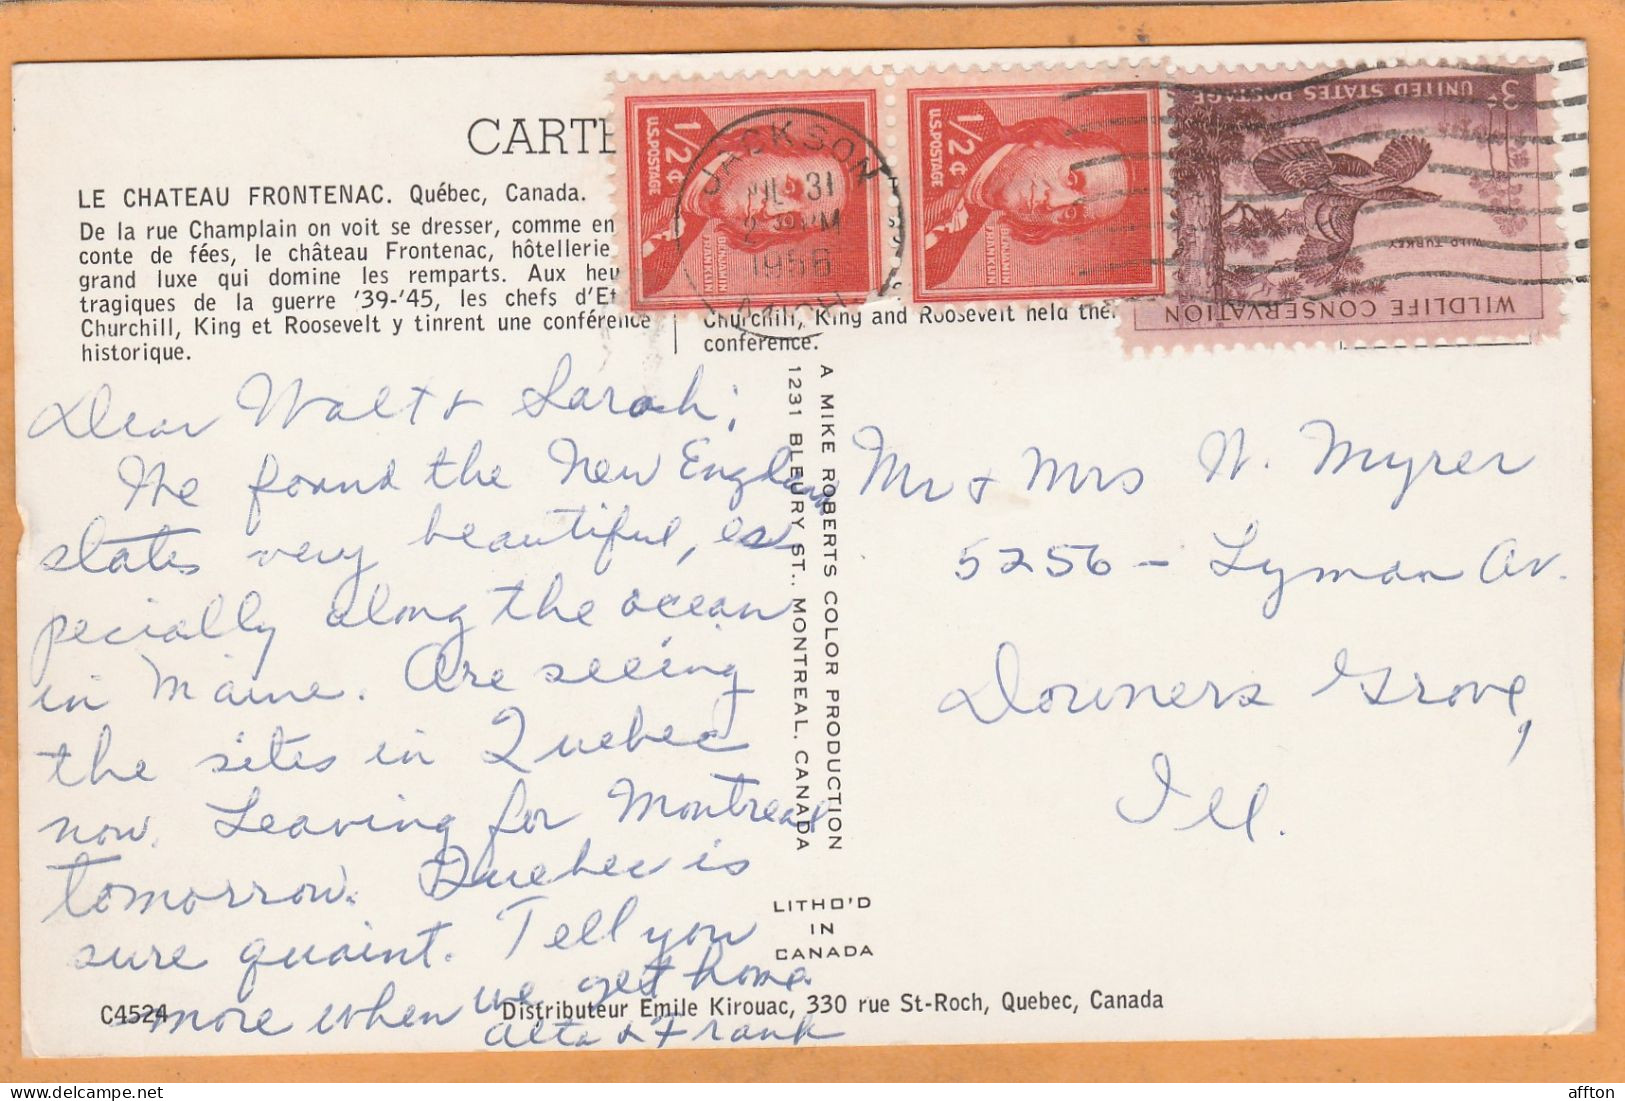 CARTE
LE CHATEAU FRONTENAC. Québec, Canada.
De la rue Champlain on voit se dresser, comme en
conte de fées, le château Frontenac, hôtellerie
grand luxe qui domine les remparts. Aux heu
tragiques de la guerre '39-'45, les chefs d'Et
Churchill, King et Roosevelt y tinrent une conférence
historique.
Churchill, King and Roosevelt held ther
conférence.
U.S. POSTAGE
1/2¢
BENJAMIN
FRANKLIN
U.S. POSTAGE
1/2¢
BENJAMIN
FRANKLIN
JACKSON
JUL 31
2 PM
1956
MICH.
3¢ UNITED STATES POSTAGE
WILD TURKEY
WILDLIFE CONSERVATION
Dear Walt & Sarah;
We found the New England
states very beautiful, es-
pecially along the ocean
in Maine. Are seeing
the sites in Quebec
now. Leaving for Montreal
tomorrow. Quebec is
sure quaint. Tell you
more when we get home.
Alta & Frank
A MIKE ROBERTS COLOR PRODUCTION
1231 BLEURY ST., MONTREAL, CANADA
LITHO'D
IN
CANADA
Mr & Mrs W. Myrer
5256 - Lyman Av.
Downers Grove,
Ill.
C4524
Distributeur Emile Kirouac, 330 rue St-Roch, Quebec, Canada
affton